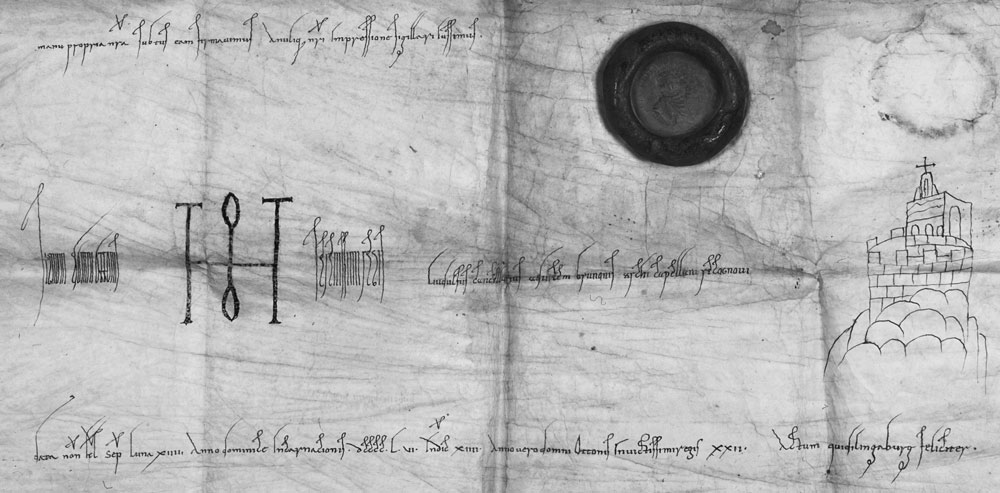 manu propria nra subtus eam firmauimus Anuliq; nri Impressione sigillari iussimus
Signum domni ottonis serenissimi regis Liudulfus cancellarius aduicem brunonis archicapellani recognoui
Data non kl sep luna xiiii Anno dominice Incarnacionis · dcccc · L · vi · Indic xiiii · Anno uero domni Ottonis Inuictissimi regis xxii · Actum quidilingaburg feliciter ·